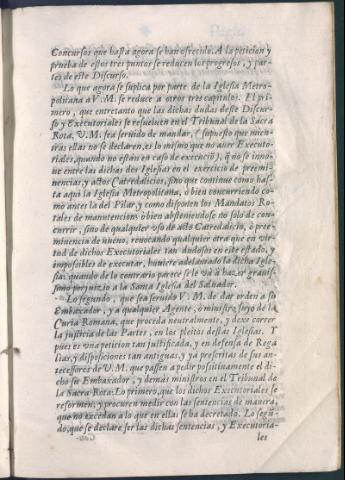 Concursos que hasta agora se han ofrecido. A la peticion y
prueba de estos tres puntos se reducen los progresos, y par-
tes de este Discurso.
Lo que agora se suplica por parte de la Iglesia Metro-
politana a V. M. se reduce a otros tres capitulos. El pri-
mero, que entretanto que las dichas dudas deste Discur-
so y Executoriales se resueluen en el Tribunal de la Sacra
Rota, V. M. sea seruido de mandar, (supuesto que mien-
tras ellas no se declaren, es lo mismo que no auer Executo-
riales, quando no están en caso de execució), q̃ no se inno-
ue entre las dichas dos Iglesias en el exercicio de preemi-
nencias, y actos Catredalicios, sino que continue como has-
ta aqui la Iglesia Metropolitana, ò bien concurriendo co-
mo antes la del Pilar, y como disponen los Mandatos Ro-
tales de manutencion, ò bien absteniendose no solo de con-
currir, sino de qualquier vso de acto Catredalicio, ò pree-
minencia de nueuo, reuocando qualquier otra que en vir-
tud de dichos Executoriales tan dudosos en este estado, y
impossibles de executar, huuiere adelantado la dicha Igle-
sia: quando de lo contrario parece se le và à hazer grauis-
simo perjuizio a la Santa Iglesia del Saluador.
Lo segundo, que sea seruido V. M. de dar orden a su
Embaxador, y a qualquier Agente, ò ministro suyo de la
Curia Romana, que proceda neutralmente, y dexe correr
la justicia de las Partes, en los pleitos destas Iglesias. Y
pues es vna peticion tan justificada, y en defensa de Rega
lias, y disposiciones tan antiguas, y ya prescritas de sus an-
tecessores de V. M. que passen a pedir positiuamente el di-
cho su Embaxador, y demàs ministros en el Tribunal de
la Sacra Rota: Lo primero, que los dichos Executoriales se
reformen, y procuren medir con las sentencias de manera,
que no excedan a lo que en ellas se ha decretado. Lo segũ-
do, que se declare ser las dichas sentencias, y Executoria-
les